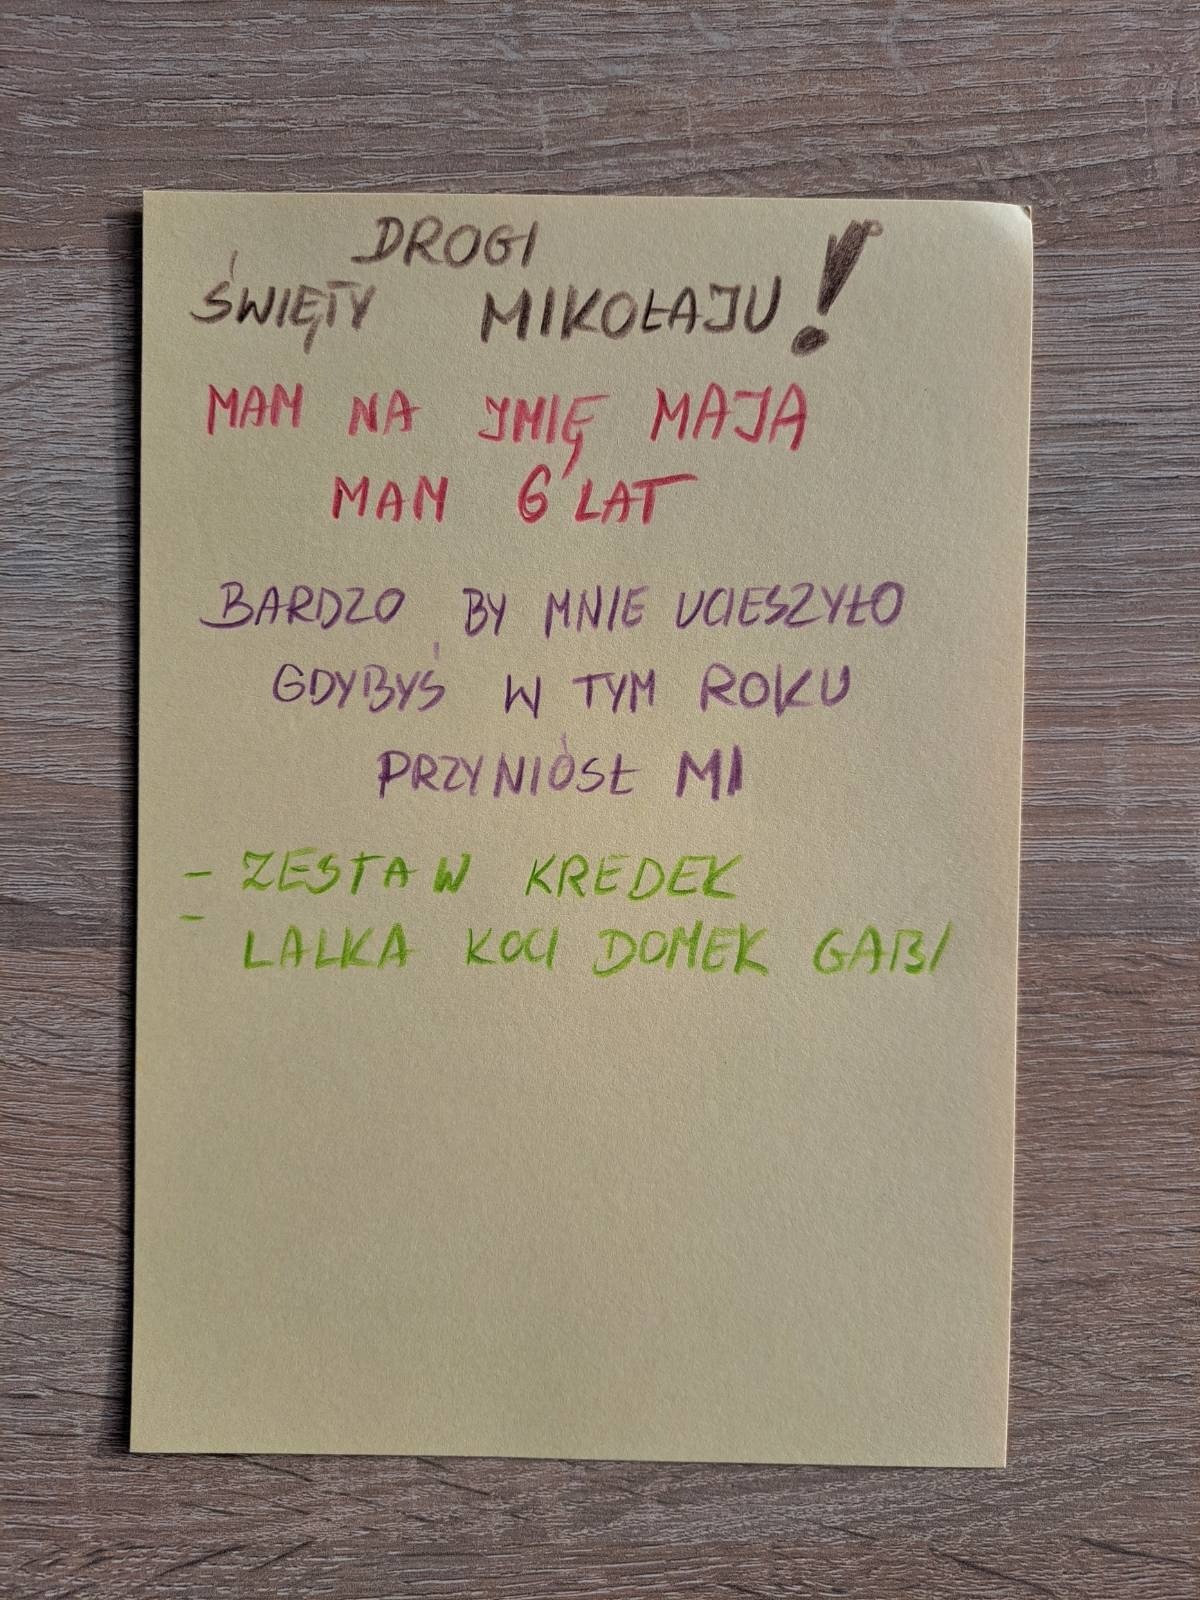 DROGI
ŚWIĘTY MIKOŁAJU!
MAM NA IMIĘ MAJA
MAM 6 LAT
BARDZO BY MNIE UCIESZYŁO
GDYBYŚ W TYM ROKU
PRZYNIÓSŁ MI
- ZESTAW KREDEK
- LALKA KOCI DOMEK GABI